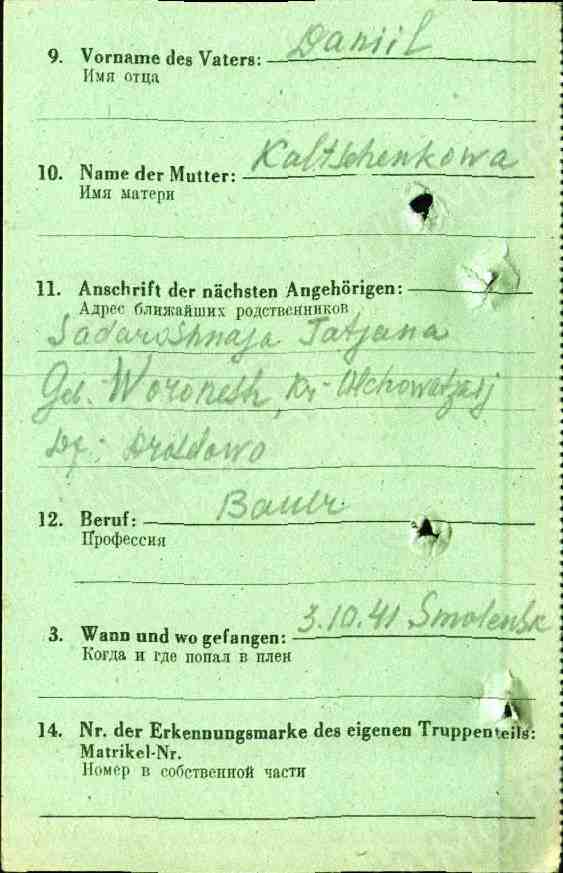 9. Vorname des Vaters: Daniil
Имя отца
10. Name der Mutter: Kaltschenkowa
Имя матери
11. Anschrift der nächsten Angehörigen:
Адрес ближайших родственников
Sadaroshnaja Tatjana
Geb. Woronesh, Kr. Olchowatzkij
Df. Drosdowo
12. Beruf: Bauer
Профессия
3. Wann und wo gefangen: 3.10.41 Smolensk
Когда и где попал в плен
14. Nr. der Erkennungsmarke des eigenen Truppenteils:
Matrikel-Nr.
Номер в собственной части